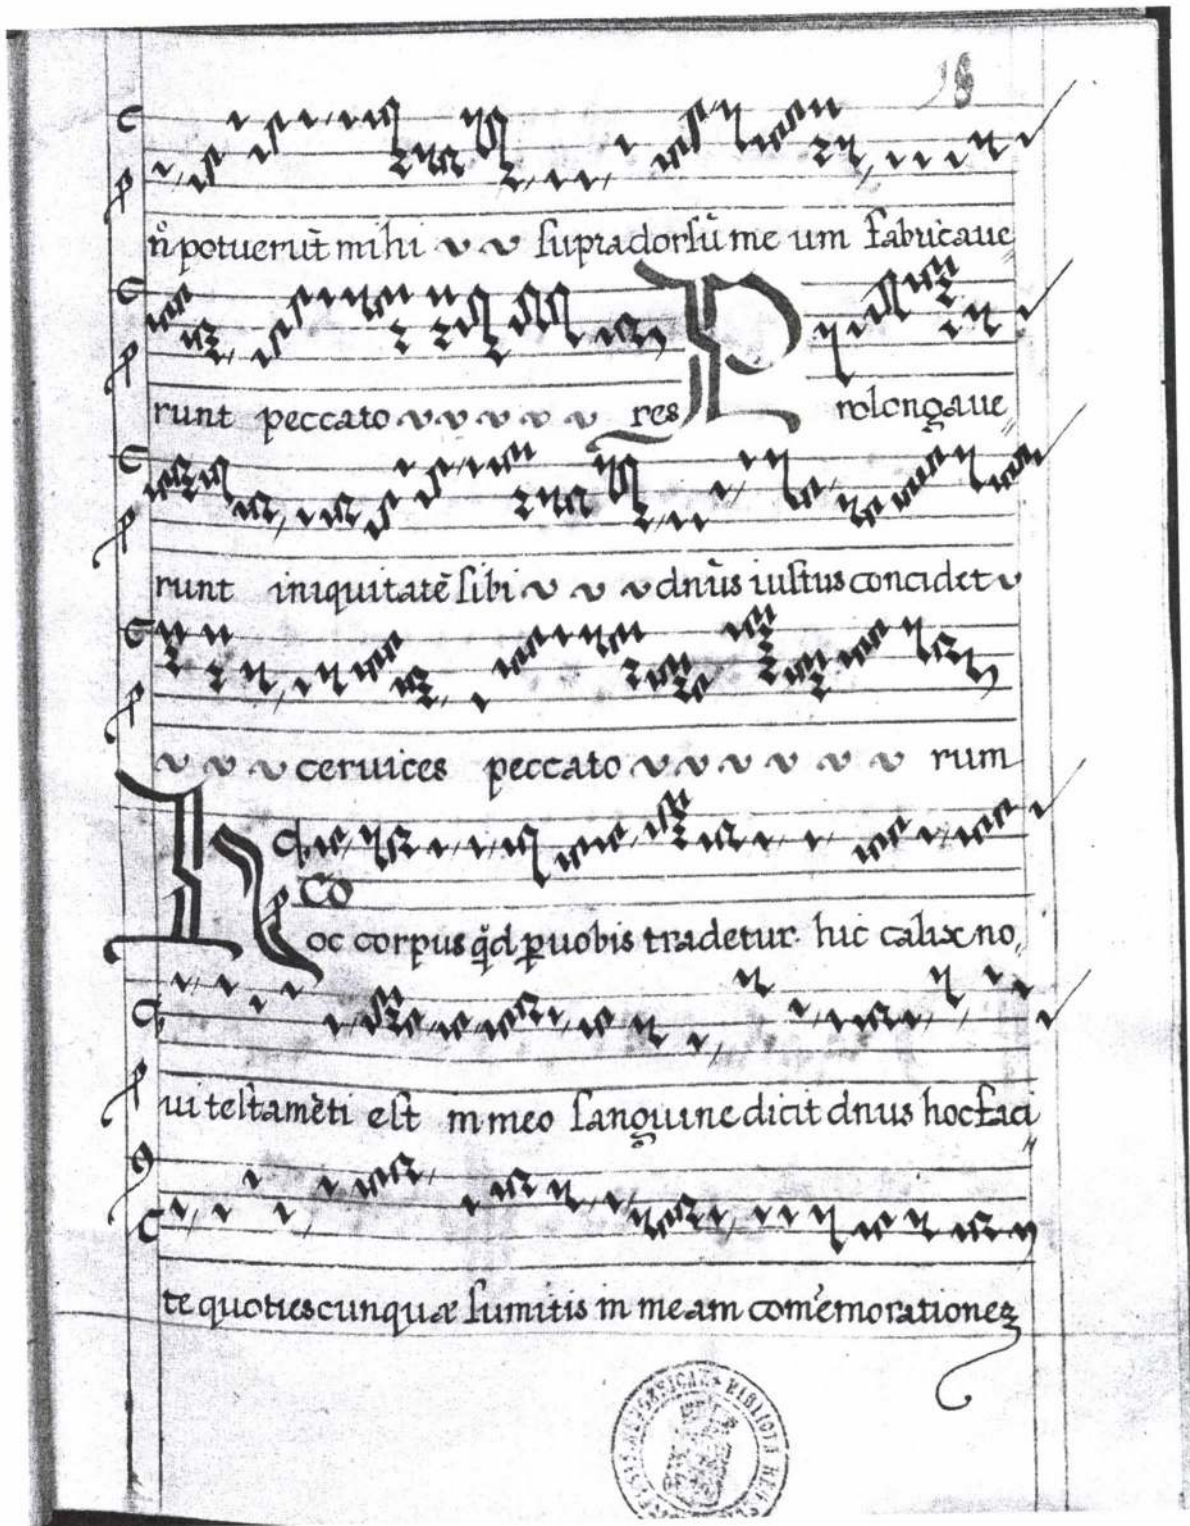 18
n̊ potuerūt mihi v v supra dorsū me um fabricaue
runt peccato v v v v v res Prolongaue
runt iniquitatē sibi v v v dn̄us iustus concidet v
v v v ceruices peccato v v v v v v rum
Co
Hoc corpus q̄d ꝑ uobis tradetur. hic calix no
ui testamēti est in meo sanguine dicit dnus hoc faci
te quotiescunquæ sumitis in meam com̄emorationeꝫ